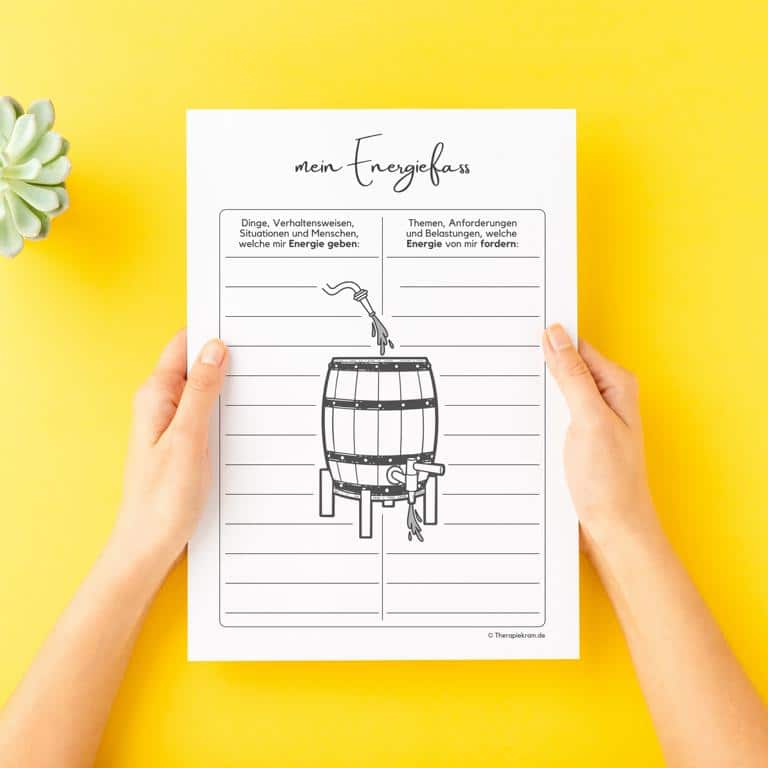 mein Energiefass
Dinge, Verhaltensweisen,
Situationen und Menschen,
welche mir Energie geben:
Themen, Anforderungen
und Belastungen, welche
Energie von mir fordern:
© Therapiekram.de